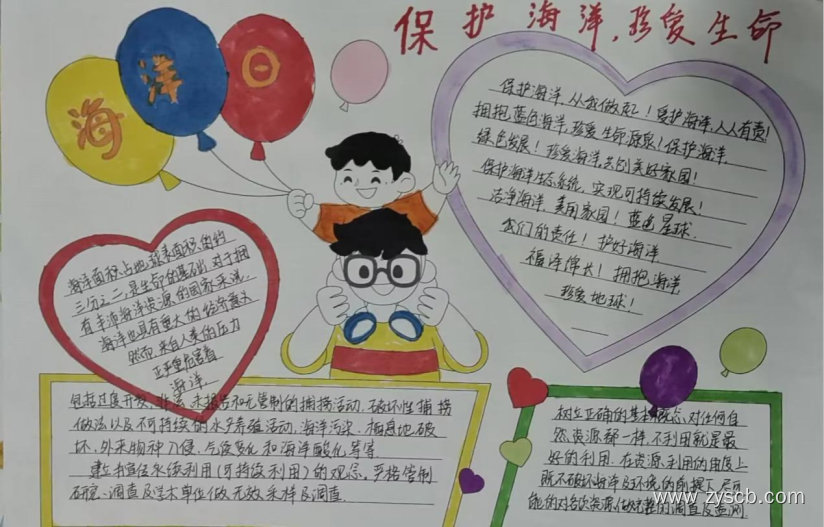 保护海洋，珍爱生命
海洋日
保护海洋，从我做起！爱护海洋，人人有责！
拥抱蓝色海洋，珍爱生命源泉！保护海洋，
绿色发展！珍爱海洋，共创美好家园！
保护海洋生态系统，实现可持续发展！
洁净海洋，美丽家园！蓝色星球，
我们的责任！护好海洋
福泽绵长！拥抱海洋
珍爱地球！
海洋面积占地球表面积的
三分之二，是生命的基础，对于拥
有丰沛海洋资源的国家来说，
海洋也具有重大的经济意义
然而，来自人类的压力
正严重危害着
海洋
包括过度开发、非法、未报告和无管制的捕捞活动、破坏性捕捞
做法以及不可持续的水产养殖活动，海洋污染、栖息地破
坏、外来物种入侵、气候变化和海洋酸化等等
建立永续利用（可持续利用）的观念，严格管制
研究、调查及学术单位做无效采样及调查
树立正确的基本概念，对任何自
然资源都一样，不利用就是最
好的利用，在资源利用的角度上
既不破坏海洋及环境的前提下，尽可
能的对各次资源做完整的调查及查测
www.zyscb.com